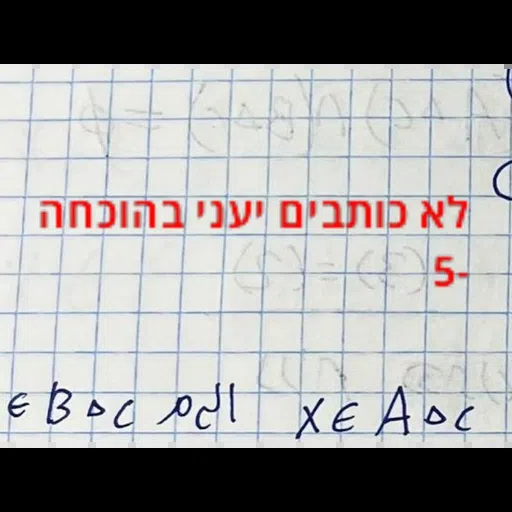 לא כותבים יעני בהוכחה
-5
x ∈ A △ C וגם ∈ B △ C